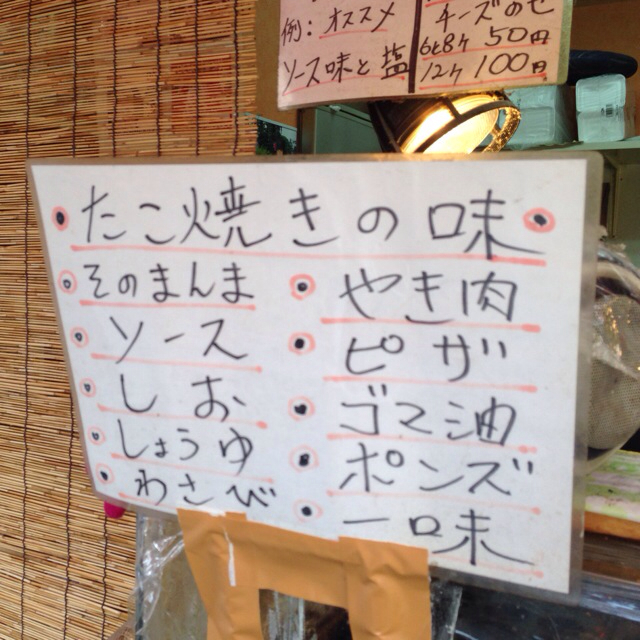 例:オススメ
ソース味と塩
チーズのせ
6ヶ8ヶ 50円
12ヶ 100円
たこ焼きの味
そのまんま
ソース
しお
しょうゆ
わさび
やき肉
ピザ
ゴマ油
ポンズ
一味